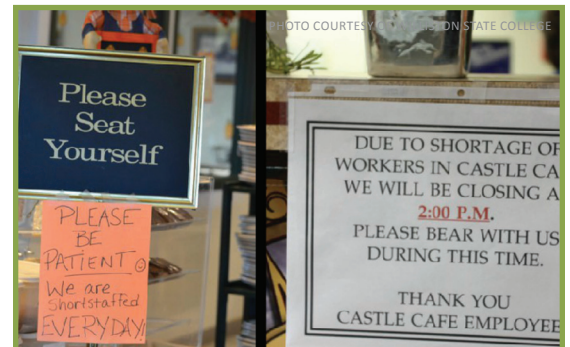 PHOTO COURTESY STATE COLLEGE
Please
Seat
Yourself
PLEASE
BE
PATIENT
We are
shortstaffed
EVERYDAY!
DUE TO SHORTAGE OF
WORKERS IN CASTLE CA
WE WILL BE CLOSING A
2:00 P.M.
PLEASE BEAR WITH US
DURING THIS TIME.
THANK YOU
CASTLE CAFE EMPLOYEE